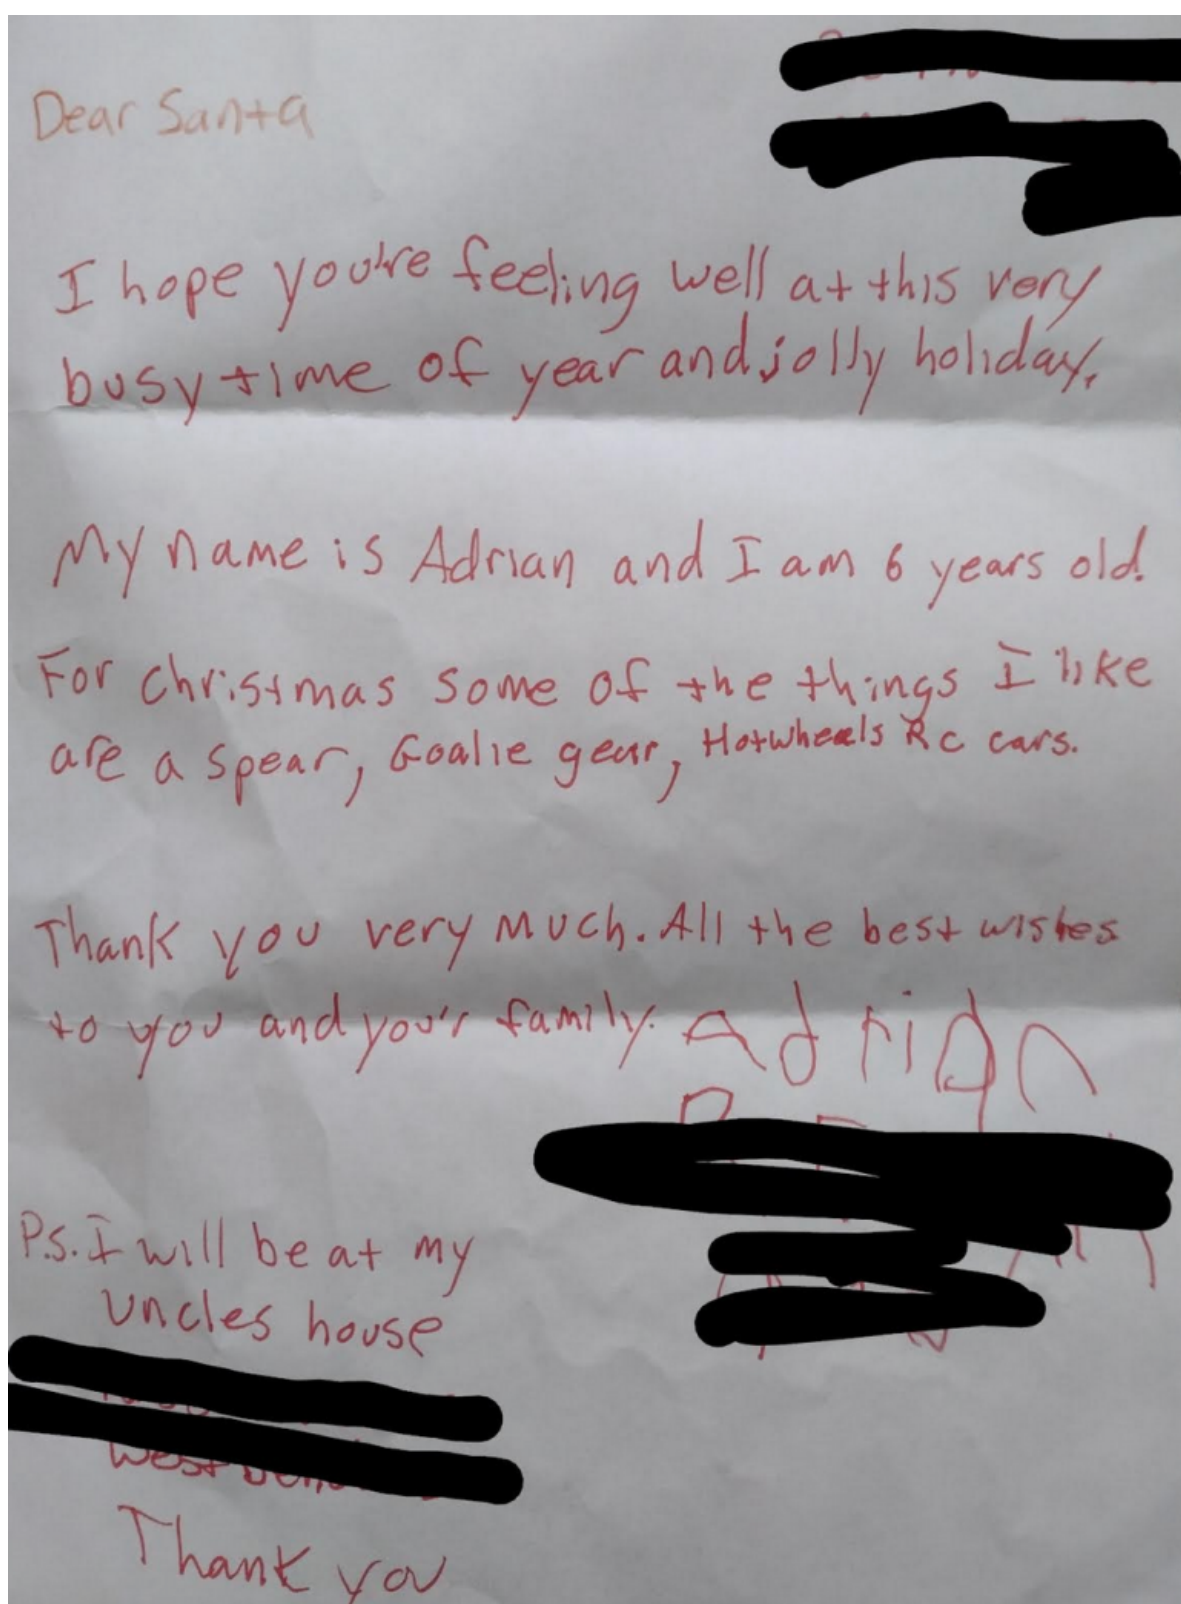 Dear Santa
I hope you're feeling well at this very
busy time of year and jolly holiday.
My name is Adrian and I am 6 years old.
For christmas some of the things I like
are a spear, Goalie gear, Hotwheels Rc cars.
Thank you very much. All the best wishes
to you and you'r family.
Adrian
P.s. I will be at my
uncles house
West
Thank you